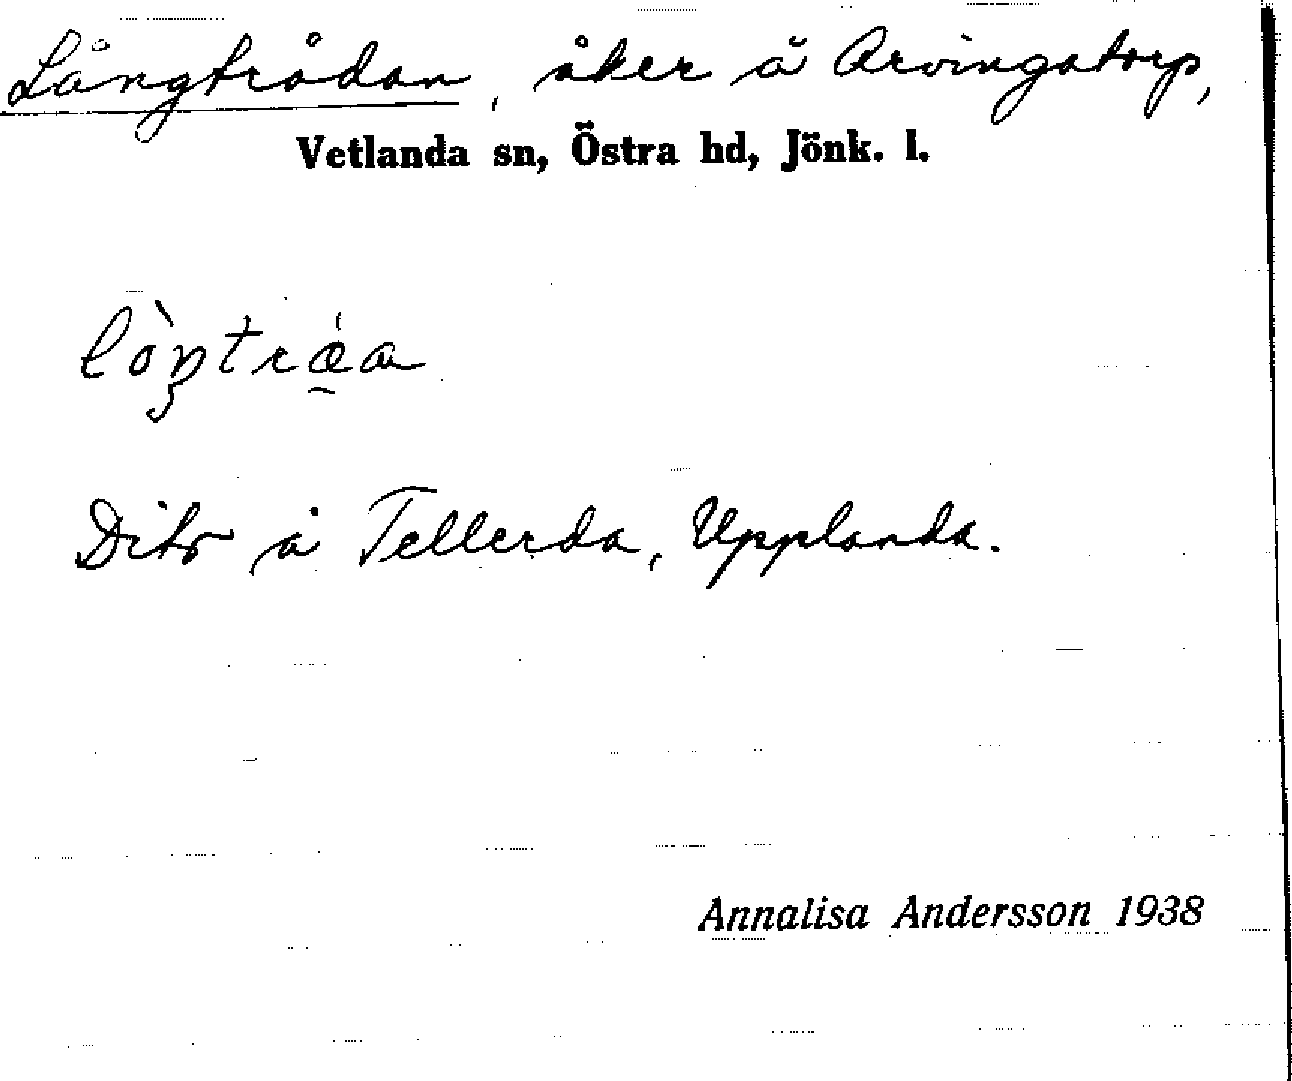 Långtrådan, åker å Arvingatorp,
Vetlanda sn, Östra hd, Jönk. l.
Dito å Tellerda, Upplanda.
Annalisa Andersson 1938